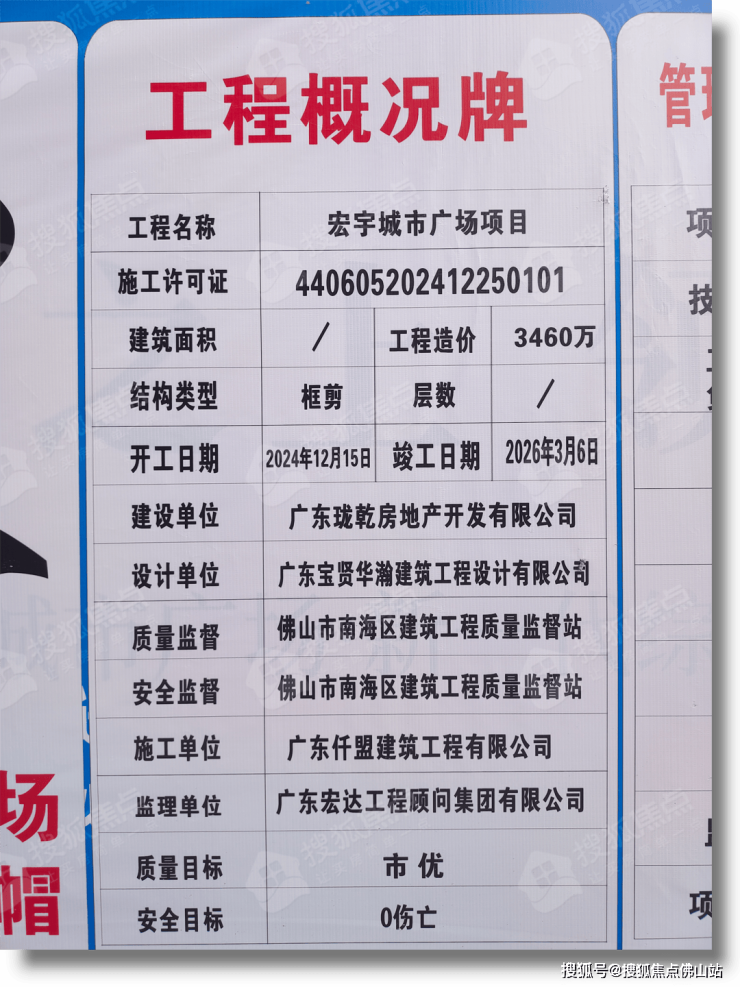 工程概况牌
工程名称 宏宇城市广场项目
施工许可证 440605202412250101
建筑面积 / 工程造价 3460万
结构类型 框剪 层数 /
开工日期 2024年12月15日 竣工日期 2026年3月6日
建设单位 广东珑乾房地产开发有限公司
设计单位 广东宝贤华瀚建筑工程设计有限公司
质量监督 佛山市南海区建筑工程质量监督站
安全监督 佛山市南海区建筑工程质量监督站
施工单位 广东仟盟建筑工程有限公司
监理单位 广东宏达工程顾问集团有限公司
质量目标 市优
安全目标 0伤亡
场
帽
管
项
技
项
搜狐号@搜狐焦点佛山站